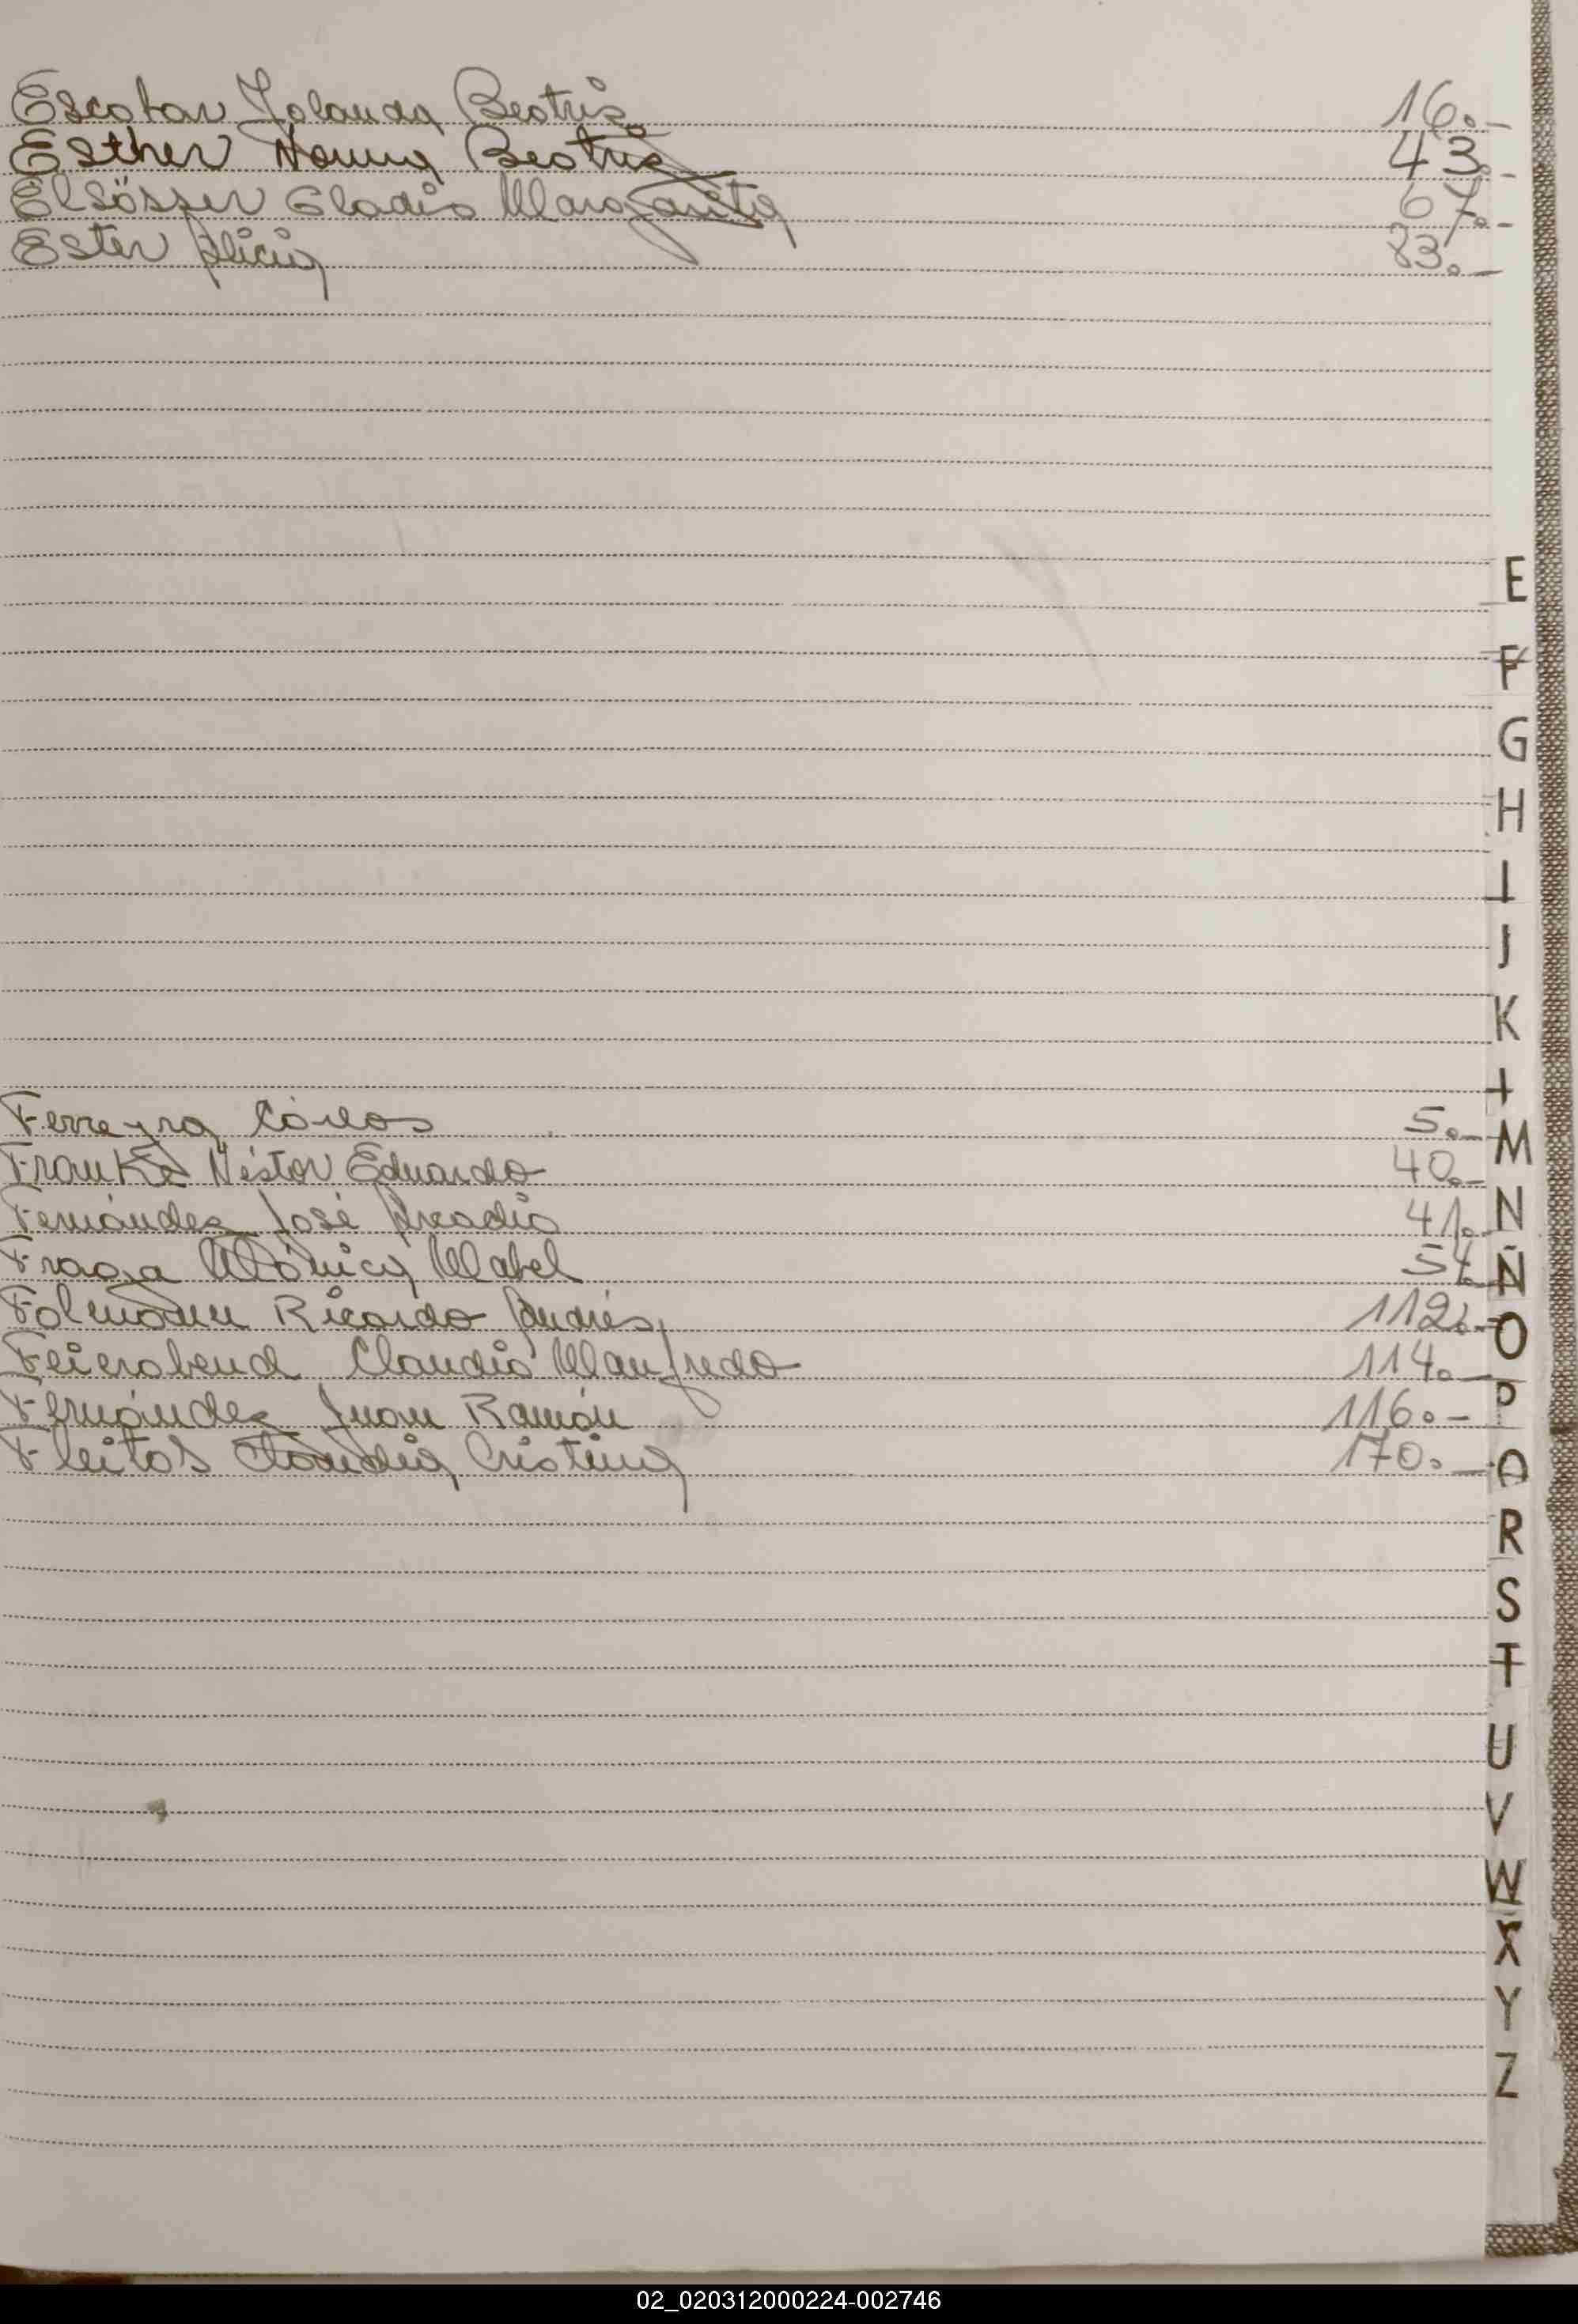 Escobar Yolanda Beatriz 16.-
Esther Norma Beatriz 43.-
Elsösser Gladis Margarita 67.-
Ester Alicia 83.-
E
F
G
H
I
J
K
L
Ferreyra Cárlos 5.-
M
Franke Néstor Eduardo 40.-
Fernández José Arcadio 41.-
N
Fraga Mónica Mabel 54.-
Ñ
Folmann Ricardo Andrés 112.-
O
Feierabend Claudio Manfredo 114.-
Fernández Juan Ramón 116.-
P
Fleitas Claudia Cristina 170.-
Q
R
S
T
U
V
W
X
Y
Z
02_020312000224-002746